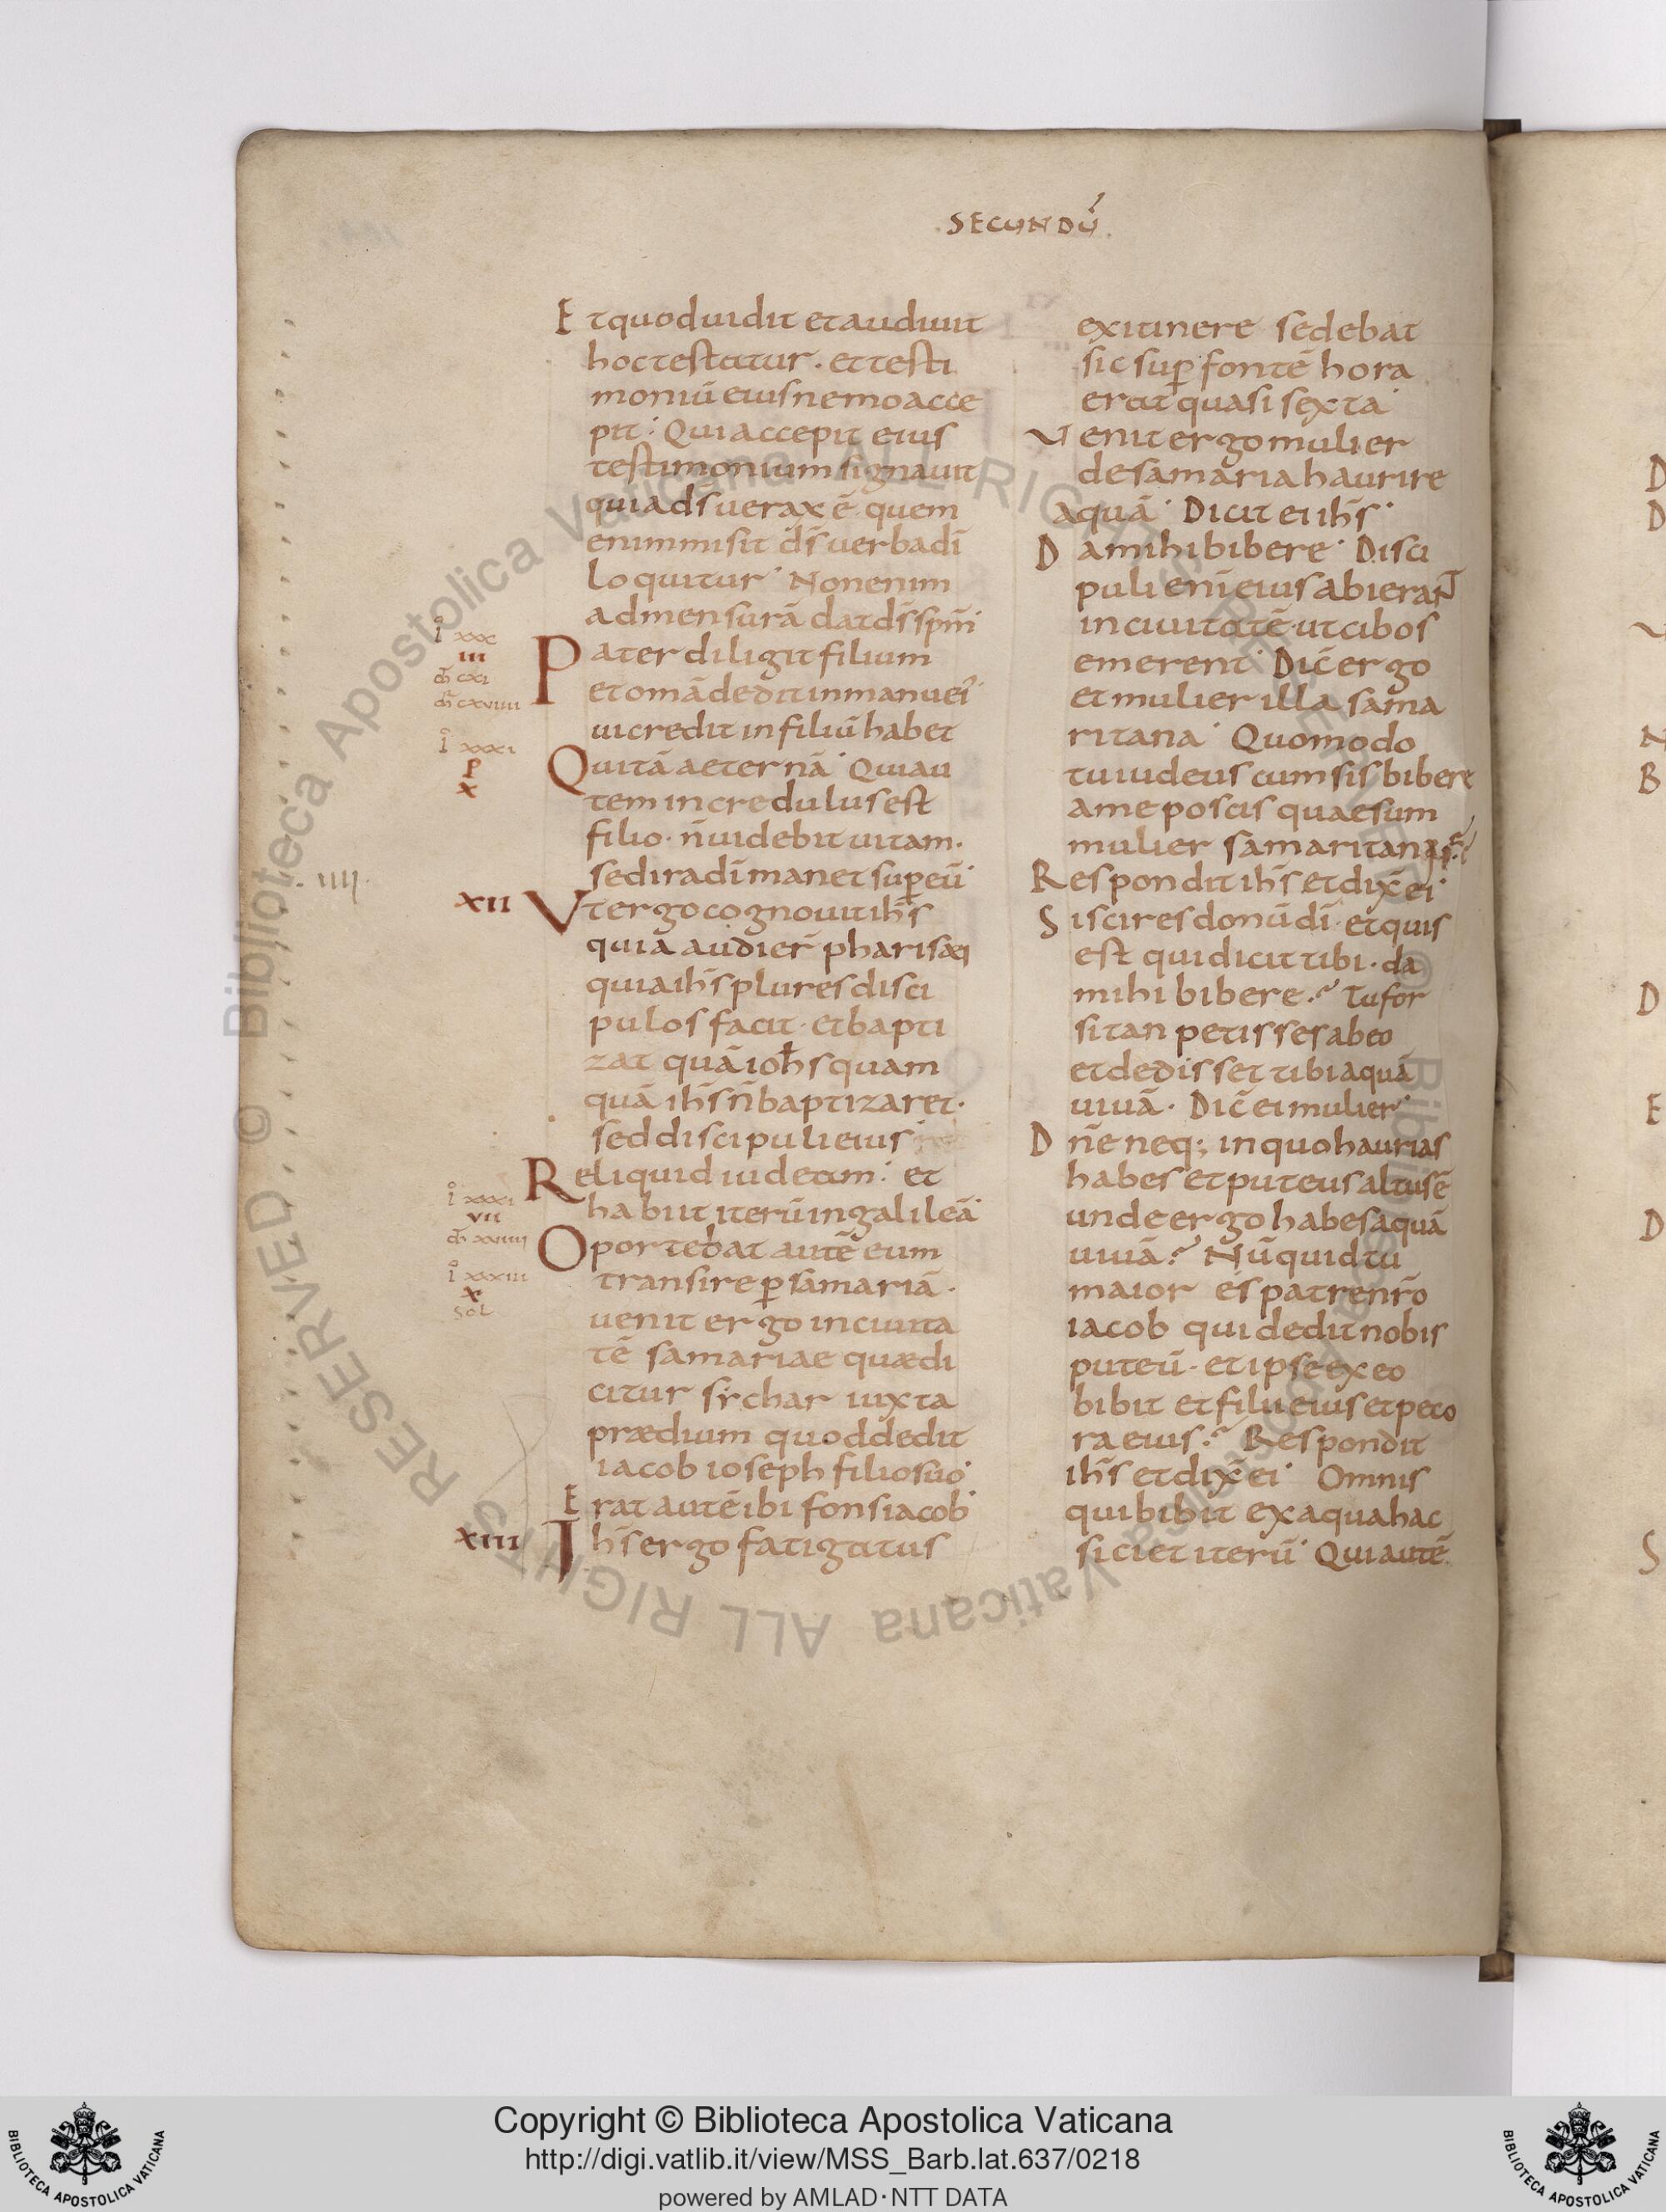 .SECUNDŪ.
Et quod uidit et audiuit
hoc testatur · et testi
moniū eius nemo acce
pit · Qui accepit eius
testimonium signauit
quia d̄s uerax ē quem
enim misit d̄s uerba dī
loquitur · Non enim
ad mensurā dat d̄s spm̄ ·
Pater diligit filium
et om̄a dedit in manu ei᾽
ui credit in filiū habet
Quitā aeternā · Qui au
tem incredulus est
filio · n̄ uidebit uitam ·
sed ira dī manet sup̱ eū ·
Vt ergo cognouit ih̄s
quia audier̄ pharisæi
quia ih̄s plures disci
pulos facit · et bapti
zat quā ioh̄s quam
quā ih̄s n̄ baptizaret ·
sed discipuli eius
Reliquid iudeam · et
habiit iterū in galileā ·
Oportebat autē eum
transire p̱ samariā ·
uenit ergo in ciuita
tē samariae quæ di
citur sychar iuxta
prædium quod dedit
iacob ioseph filio suo ·
Erat autē ibi fons iacob ·
Ih̄s ergo fatigatus
i xxx
iii
xxxi
p
x
.iiii.
xii
i xxxi
vii
i xxxiii
x
sol
xiii
ex itinere sedebat
sic sup̱ fontē hora
erat quasi sexta ·
Uenit ergo mulier
de samaria haurire
aquā · Dicit ei ih̄s ·
Da mihi bibere · Disci
puli enī eius abierant
in ciuitatē · ut cibos
emerent · Dic̄ ergo
et mulier illa sama
ritana · Quomodo
tu iudeus cum sis bibere
a me poscis quae sum
mulier samaritana
Respondit ih̄s et dix̄ ei ·
Si scires donū dī · et quis
est qui dicit tibi · da
mihi bibere · Tu for
sitan petisses ab eo
et dedisset tibi aquā
uiuā · Dic̄ ei mulier ·
Dn̄e neq; in quo haurias
habes et puteus altus ē
unde ergo habes aquā
uiuā · Nūquid tu
maior es patre nr̄o
iacob qui dedit nobis
puteū · et ipse ex eo
bibit et filii eius et peco
ra eius · Respondit
ih̄s et dix̄ ei · Omnis
qui bibit ex aqua hac
siciet iterū · Qui autē
D
D
N
B
D
E
D
S
© Biblioteca Apostolica Vaticana ALL RIGHTS RESERVED
Copyright © Biblioteca Apostolica Vaticana
http://digi.vatlib.it/view/MSS_Barb.lat.637/0218
powered by AMLAD·NTT DATA
BIBLIOTECA APOSTOLICA VATICANA
BIBLIOTECA APOSTOLICA VATICANA